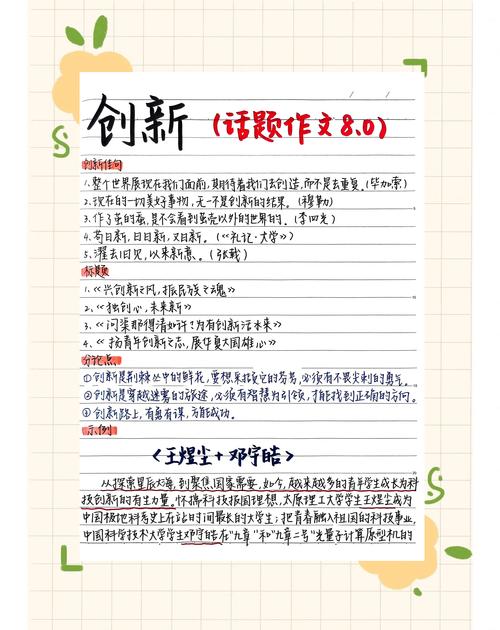 创新 (话题作文8.0)
创新佳句
1.整个世界展现在我们面前,期待着我们去创造,而不是去重复。(毕加索)
2.现在的一切美好事物,无一不是创新的结果。(穆勒)
3.作了茧的蚕,是不会看到茧壳以外的世界的。(李四光)
4.苟日新,日日新,又日新。(《礼记·大学》)
5.濯去旧见,以来新意。(张载)
标题
1.《兴创新之风,振民族之魂》
2.《独创心,未来新》
3.《问渠那得清如许?为有创新活水来》
4.《扬青年创新之志,展华夏大国雄心》
分论点
①创新是荆棘丛中的鲜花,要想采撷它的芬芳,必须有不畏尖刺的勇气。
②创新是穿越迷雾的旅途,必须有智慧为引领,才能找到正确的方向。
③创新路上,有勇有谋,方能成功。
示例
《王煜尘+邓宇皓》
从探索星辰大海,到聚焦国家需要,如今,越来越多的青年学生成长为科
技创新的有生力量。怀揣科技报国理想,太原理工大学学生王煜尘成为
中国极地科考史上在站时间最长的大学生;把青春融入祖国的科技事业,
中国科学技术大学学生邓宇皓在"九章"和"九章二号"光量子计算原型机的